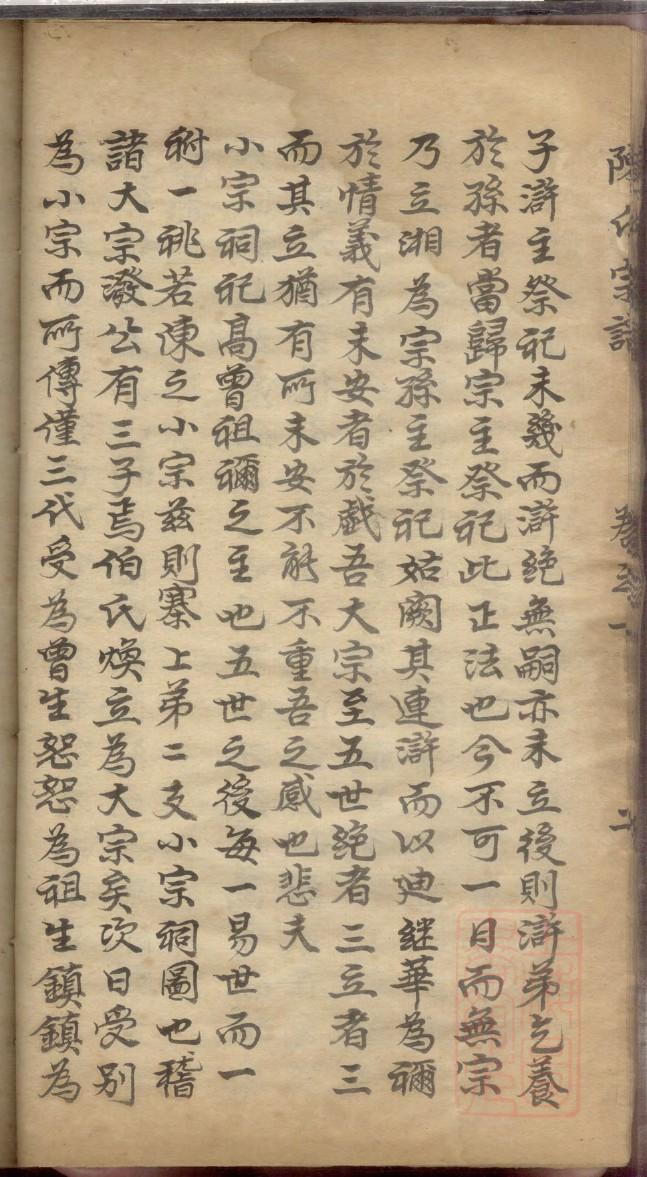 陳氏宗譜 卷之一 二
子滸主祭祀未幾而滸絕無嗣亦未立後則滸弟乞養
於孫者當歸宗主祭祀此正法也今不可一日而無宗
乃立湘為宗孫主祭祀姑闕其連滸而以迪継華為禰
於情義有未安者於戲吾大宗至五世絕者三立者三
而其立猶有所未安不能不重吾之感也悲夫
小宗祠祀髙曾祖禰之主也五世之後每一易世而一
祔一祧若涷之小宗兹則寨上弟二支小宗祠圖也稽
諸大宗潑公有三子焉伯氏煥立為大宗矣次曰受别
為小宗而所傳僅三代受為曾生恕恕為祖生鎮鎮為